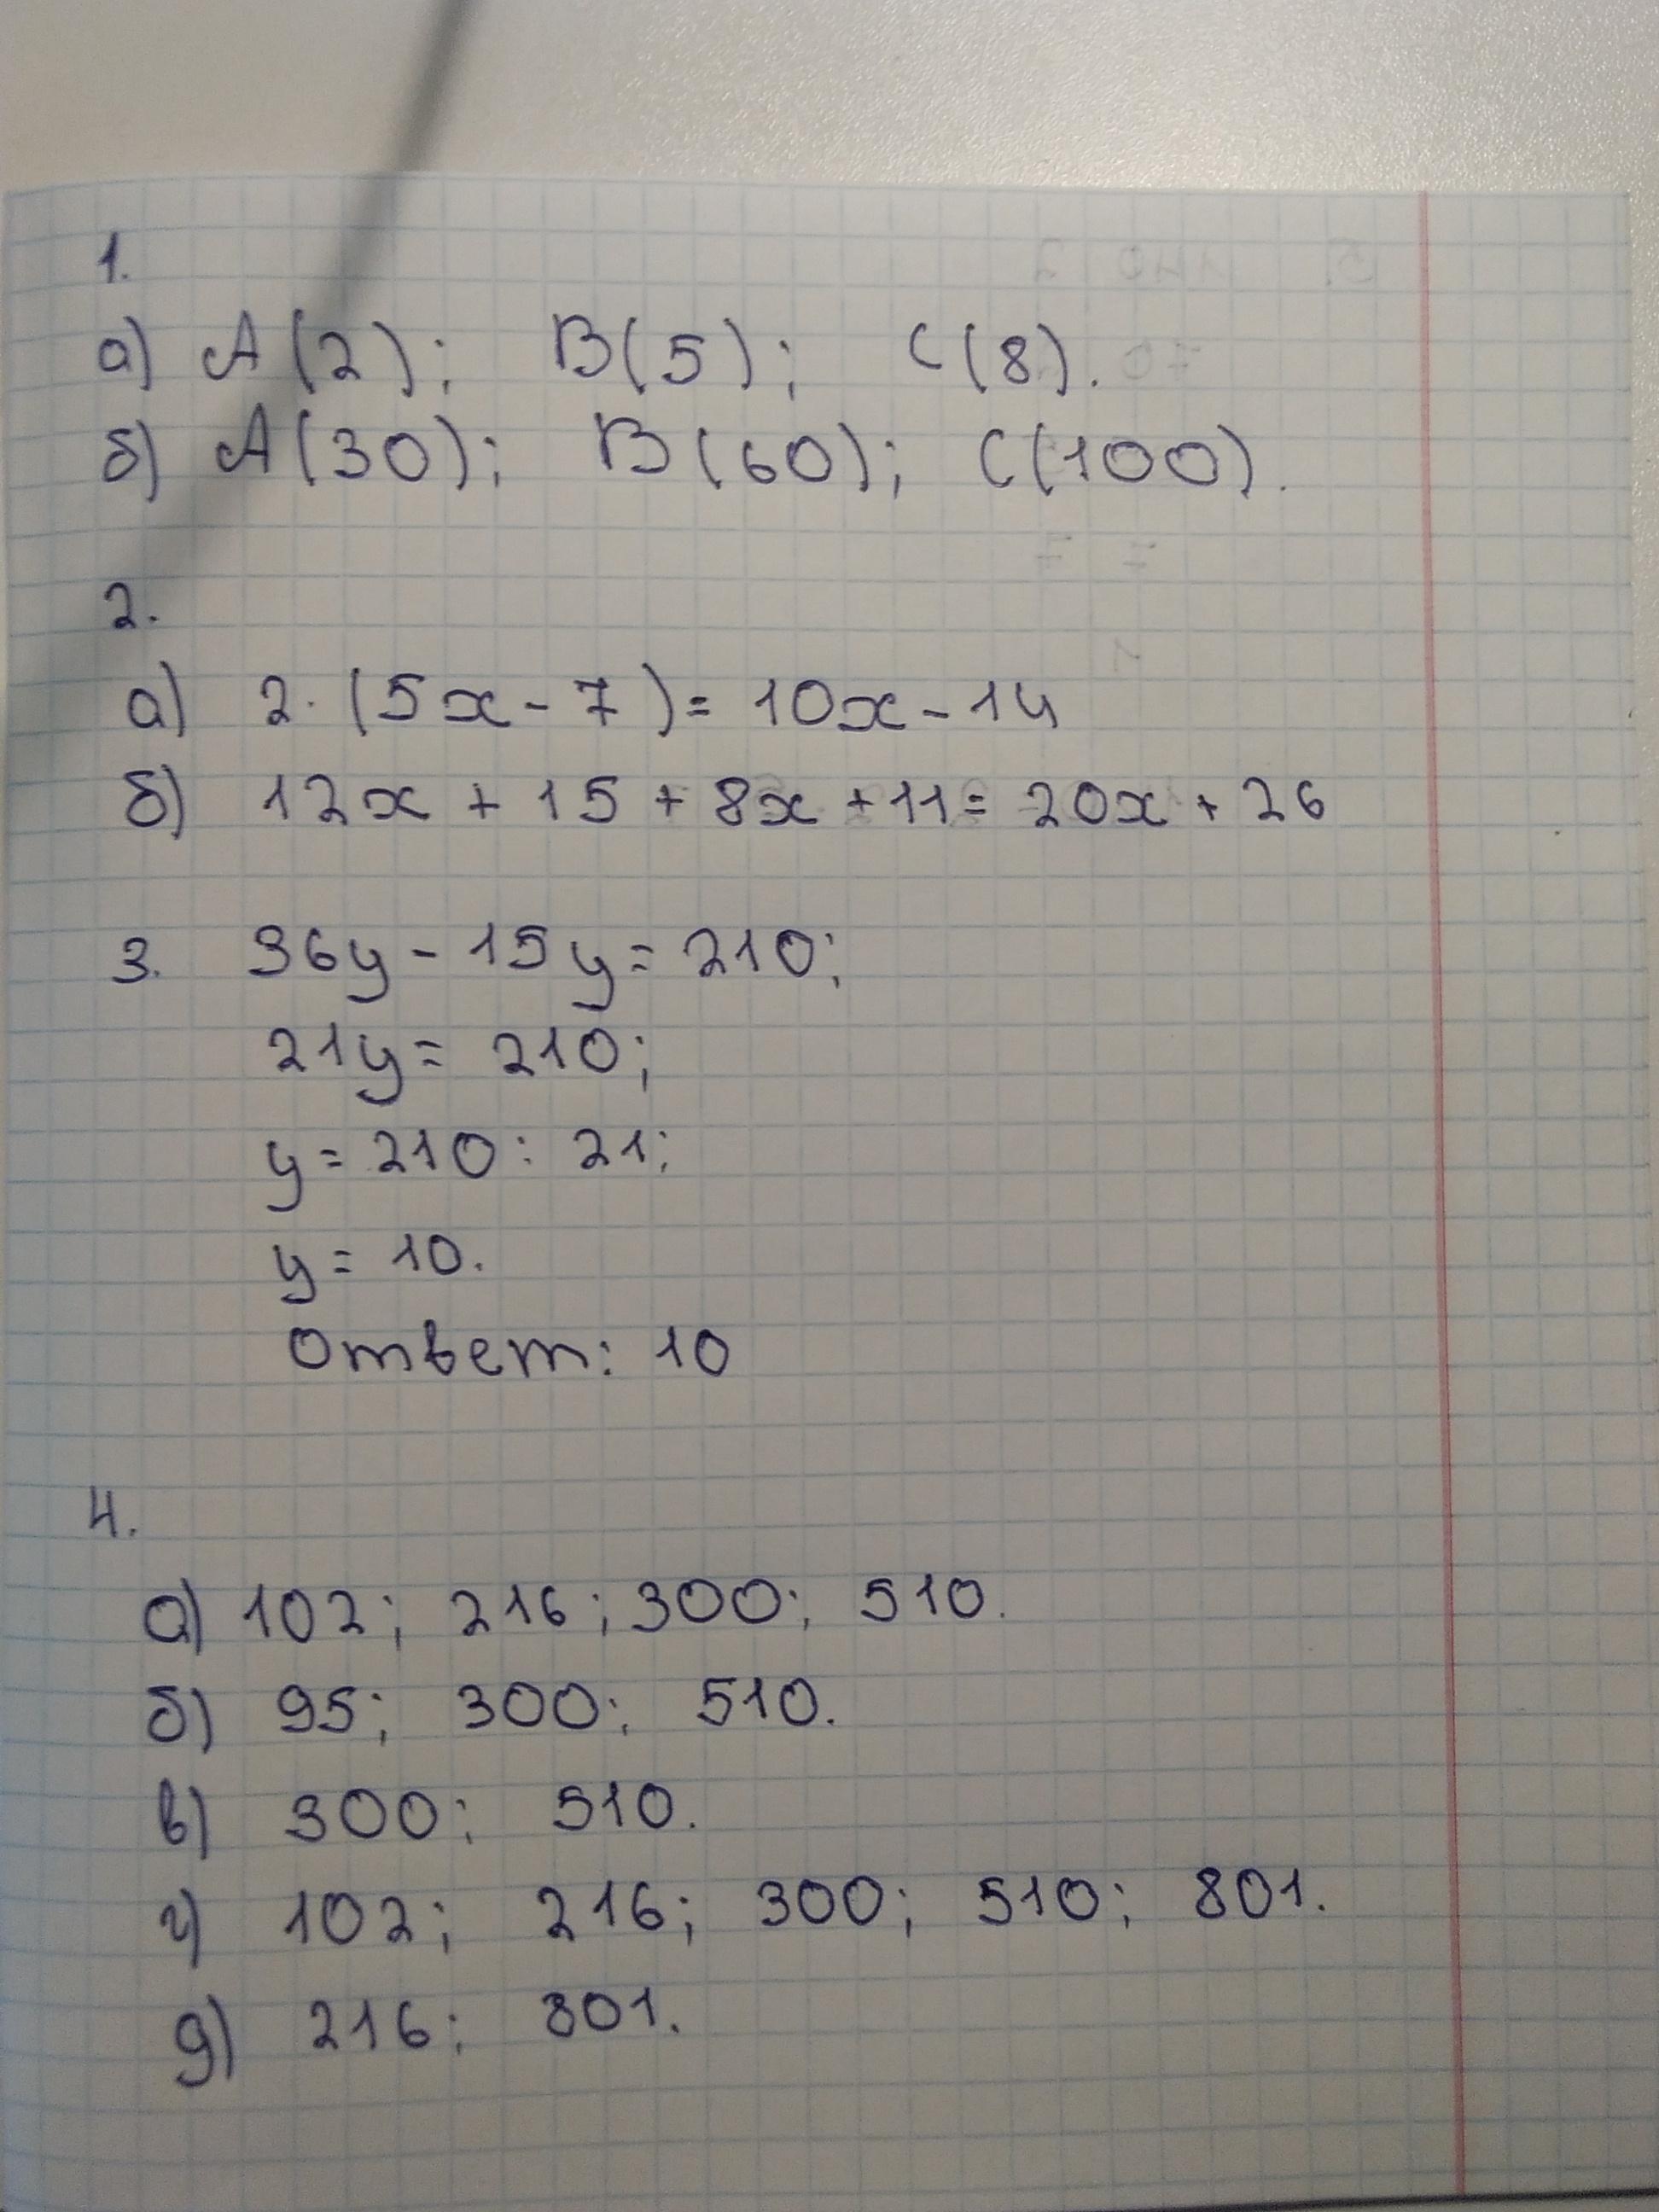 1.
а) A(2); B(5); C(8).
б) A(30); B(60); C(100).
2.
а) 2·(5x-7)=10x-14
б) 12x+15+8x+11=20x+26
3. 36y-15y=210;
21y=210;
y=210:21;
y=10.
Ответ: 10
4.
а) 102; 216; 300; 510.
б) 95; 300; 510.
в) 300; 510.
г) 102; 216; 300; 510; 801.
д) 216; 801.